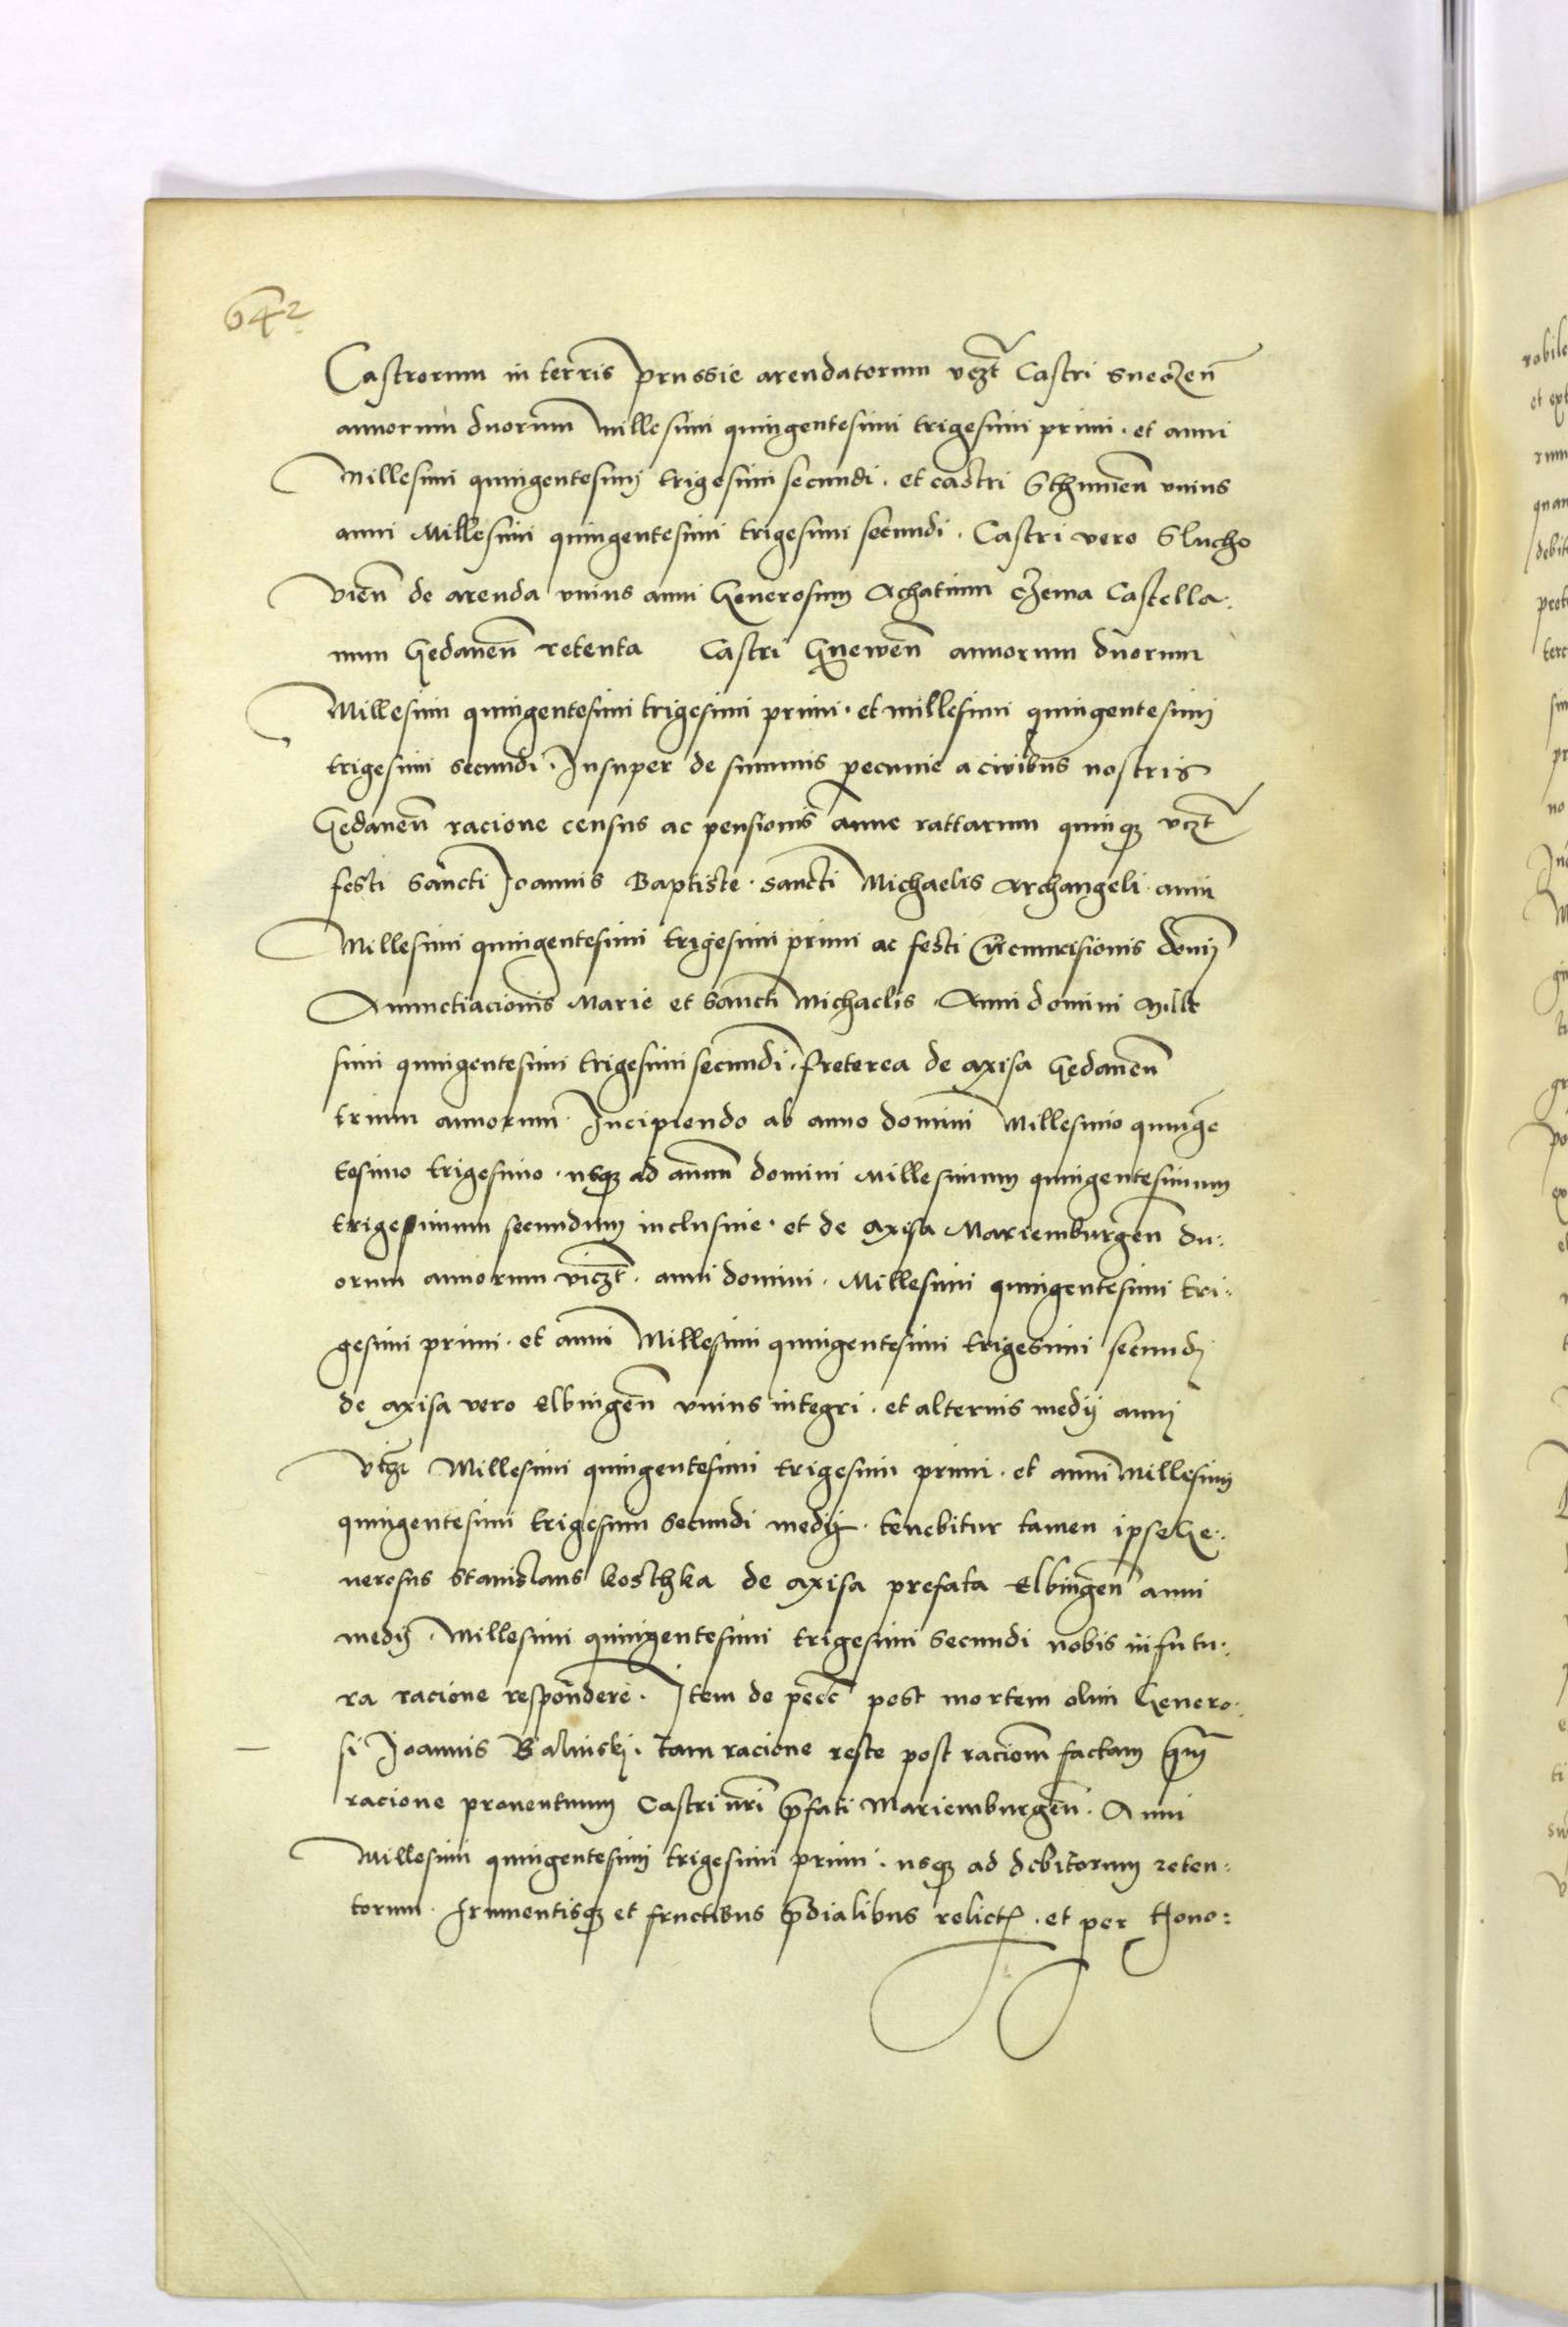 642
Castrorum in terris prussie arendatorum vczt Castri Sueczen̄
annorum duorum millesimi quingentesimi trigesimi primi · et anni
Millesimi quingentesimi trigesimi secundi · et castri Sthumen̄ vnius
anni Millesimi quingentesimi trigesimi secundi · Castri vero Slucho
vien̄ de arenda vnius anni Generosum Achatium Czema Castella:
num Gedanen̄ retenta Castri Gnewen̄ annorum duorum
Millesimi quingentesimi trigesimi primi · et millesimi quingentesimi
trigesimi secundi · Insuper de summis pecunie a civibus nostris
Gedanen̄ racione census ac pensionis anne rattarum quinqz vczt
festi Sancti Joannis Baptiste · sancti Michaelis Archangeli · anni
Millesimi quingentesimi trigesimi primi ac festi Circumcisionis domi
Anunctiacionis Marie et Sancti Michaelis · Anni domini Mille
simi quingentesimi trigesimi secundi · Preterea de axisa Gedanen̄
trium annorum · Incipiendo ab anno domini Millesimo quinge
tesimo trigesimo · usqz ad annum domini Millesimum quingentesimum
trigesimum secundum inclusiue · et de axisa Mariemburgen̄ du:
orum annorum viczt · anni domini · Millesimi quingentesimi tri:
gesimi primi · et anni Millesimi quingentesimi trigesimi secundi
de axisa vero Elbingen̄ vnius integri · et alternis medij anni
vicz Millesimi quingentesimi trigesimi primi · et anni Millesimi
quingentesimi trigesimi secundi medij · tenebitur tamen ipse Ge:
nerosus Stanislaus Kosthka de axisa prefata Elbingen̄ anni
medij · Millesimi quingentesimi trigesimi secundi nobis in futu:
ra racione respondere · Item de pecc post mortem olim Genero:
si Joannis Balinskj · tam racione reste post racionem factam qm̄
racione prouentuum Castri nr̄i p̄fati Mariemburgen̄ · Anni
Millesimi quingentesimi trigesimi primi · usqz ad debitorum reten:
torum · frumentisqz et fructibus p̄dialibus relict · et per Hono: